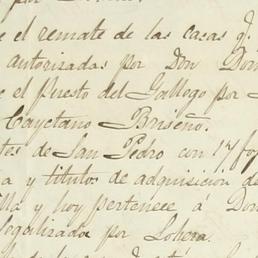 por
e el remate de las casas q.
autorizadas por Don Dom
e el Puesto del Gallego por
Cayetano Briseño.
tes de San Pedro con 17 foj
a y titulos de adquisicion de
lla y hoy pertenece á Don
legalizada por Lohera.